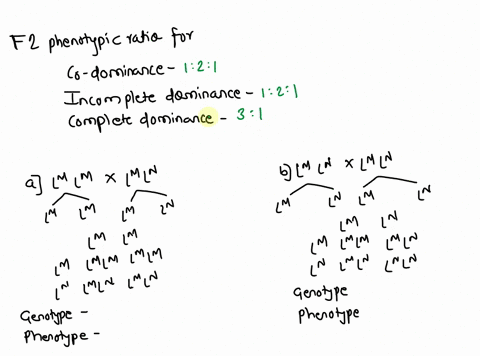 F2 phenotypic ratio for
Co-dominance - 1:2:1
Incomplete dominance - 1:2:1
Complete dominance - 3:1
a] L^M L^M × L^M L^N
L^M L^M L^M L^N
L^M L^M
L^M L^M L^M L^M L^M
L^N L^M L^N L^M L^N
Genotype -
Phenotype -
b] L^M L^N × L^M L^N
L^M L^N L^M L^N
L^M L^N
L^M L^M L^M L^M L^N
L^N L^M L^N L^N L^N
Genotype
Phenotype